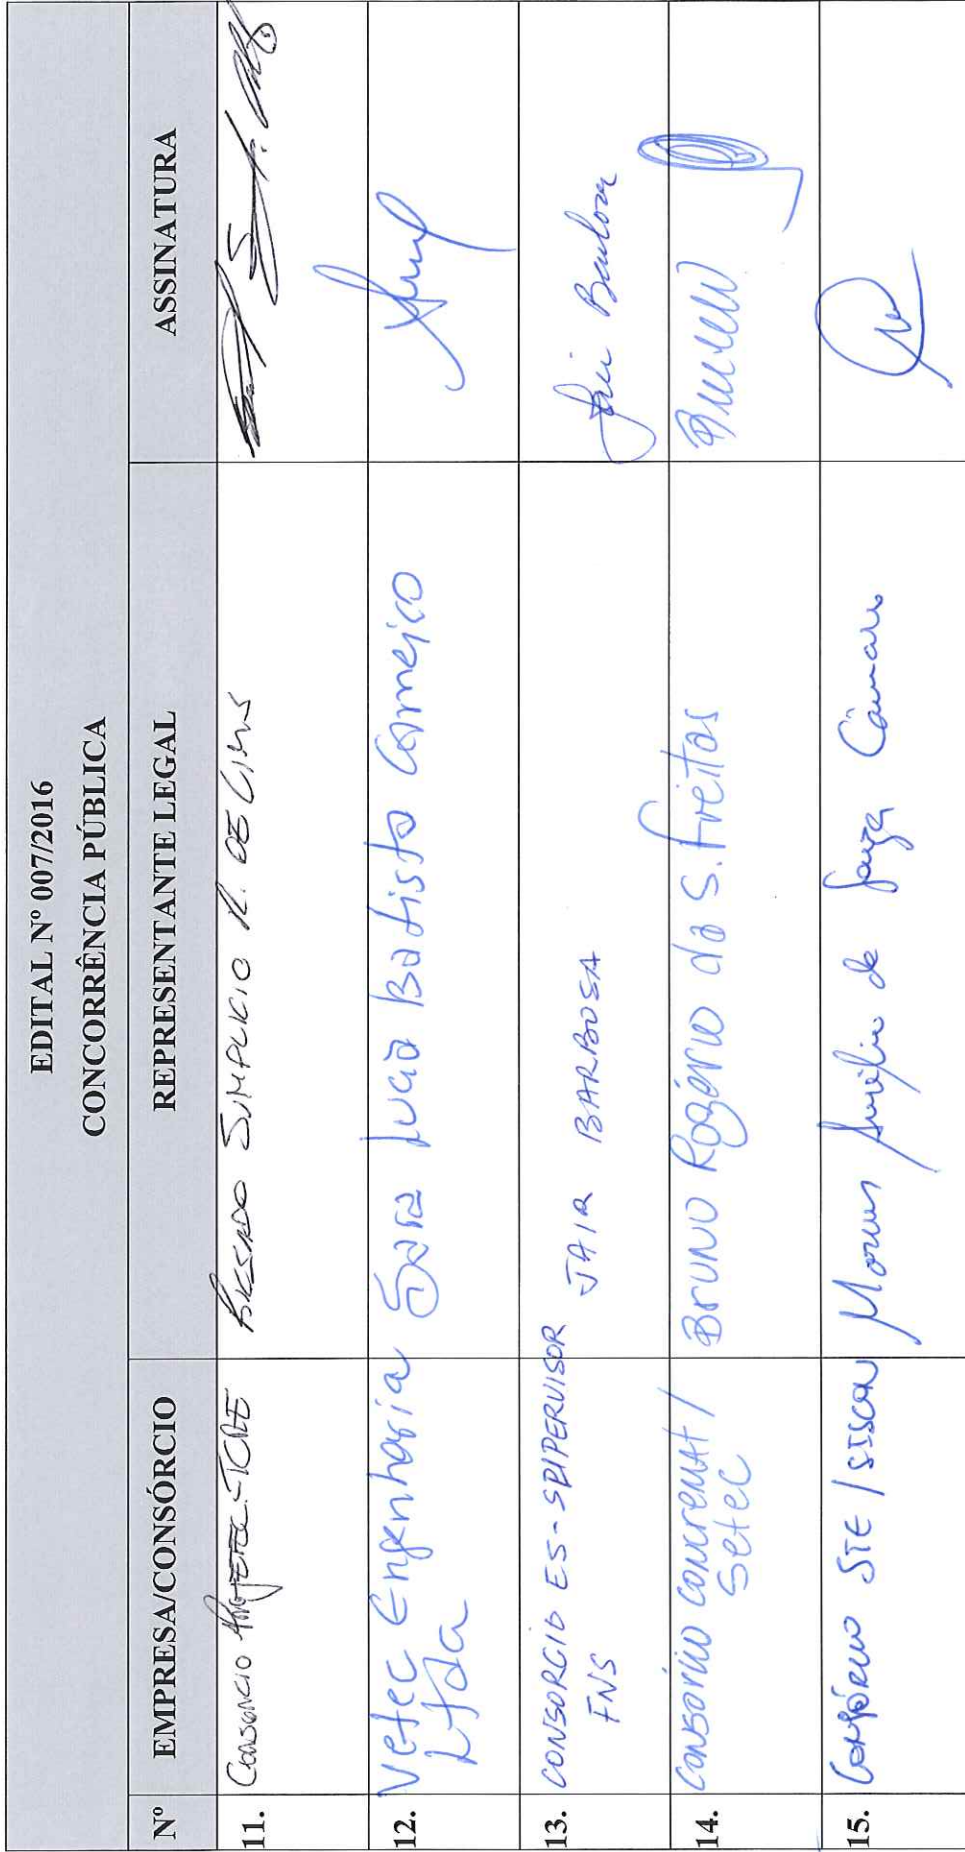 EDITAL Nº 007/2016
CONCORRÊNCIA PÚBLICA
Nº EMPRESA/CONSÓRCIO REPRESENTANTE LEGAL ASSINATURA
11. CONSÓRCIO SIMPLICIO R. DE LIMA
12. Vetec Engenharia Sara Lucia Batista Carneiro
Ltda
13. CONSORCIO ES-SUPERVISOR JAIR BARBOSA Jair Barbosa
FNS
14. CONSÓRCIO CONCREMAT / Bruno Rogério da S. Freitas Bruno
Setec
15. Consórcio STE / SISCON Marcus Aurélio de Souza Câmara